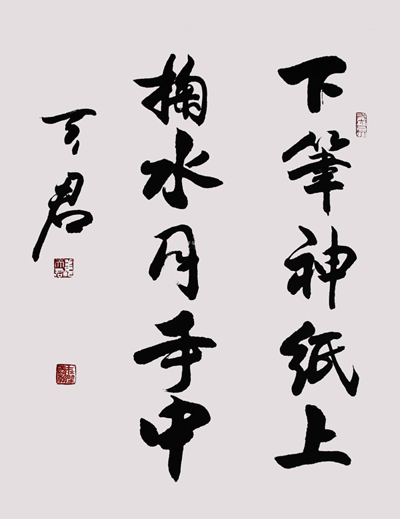 下筆神紙上
掬水月手中
君